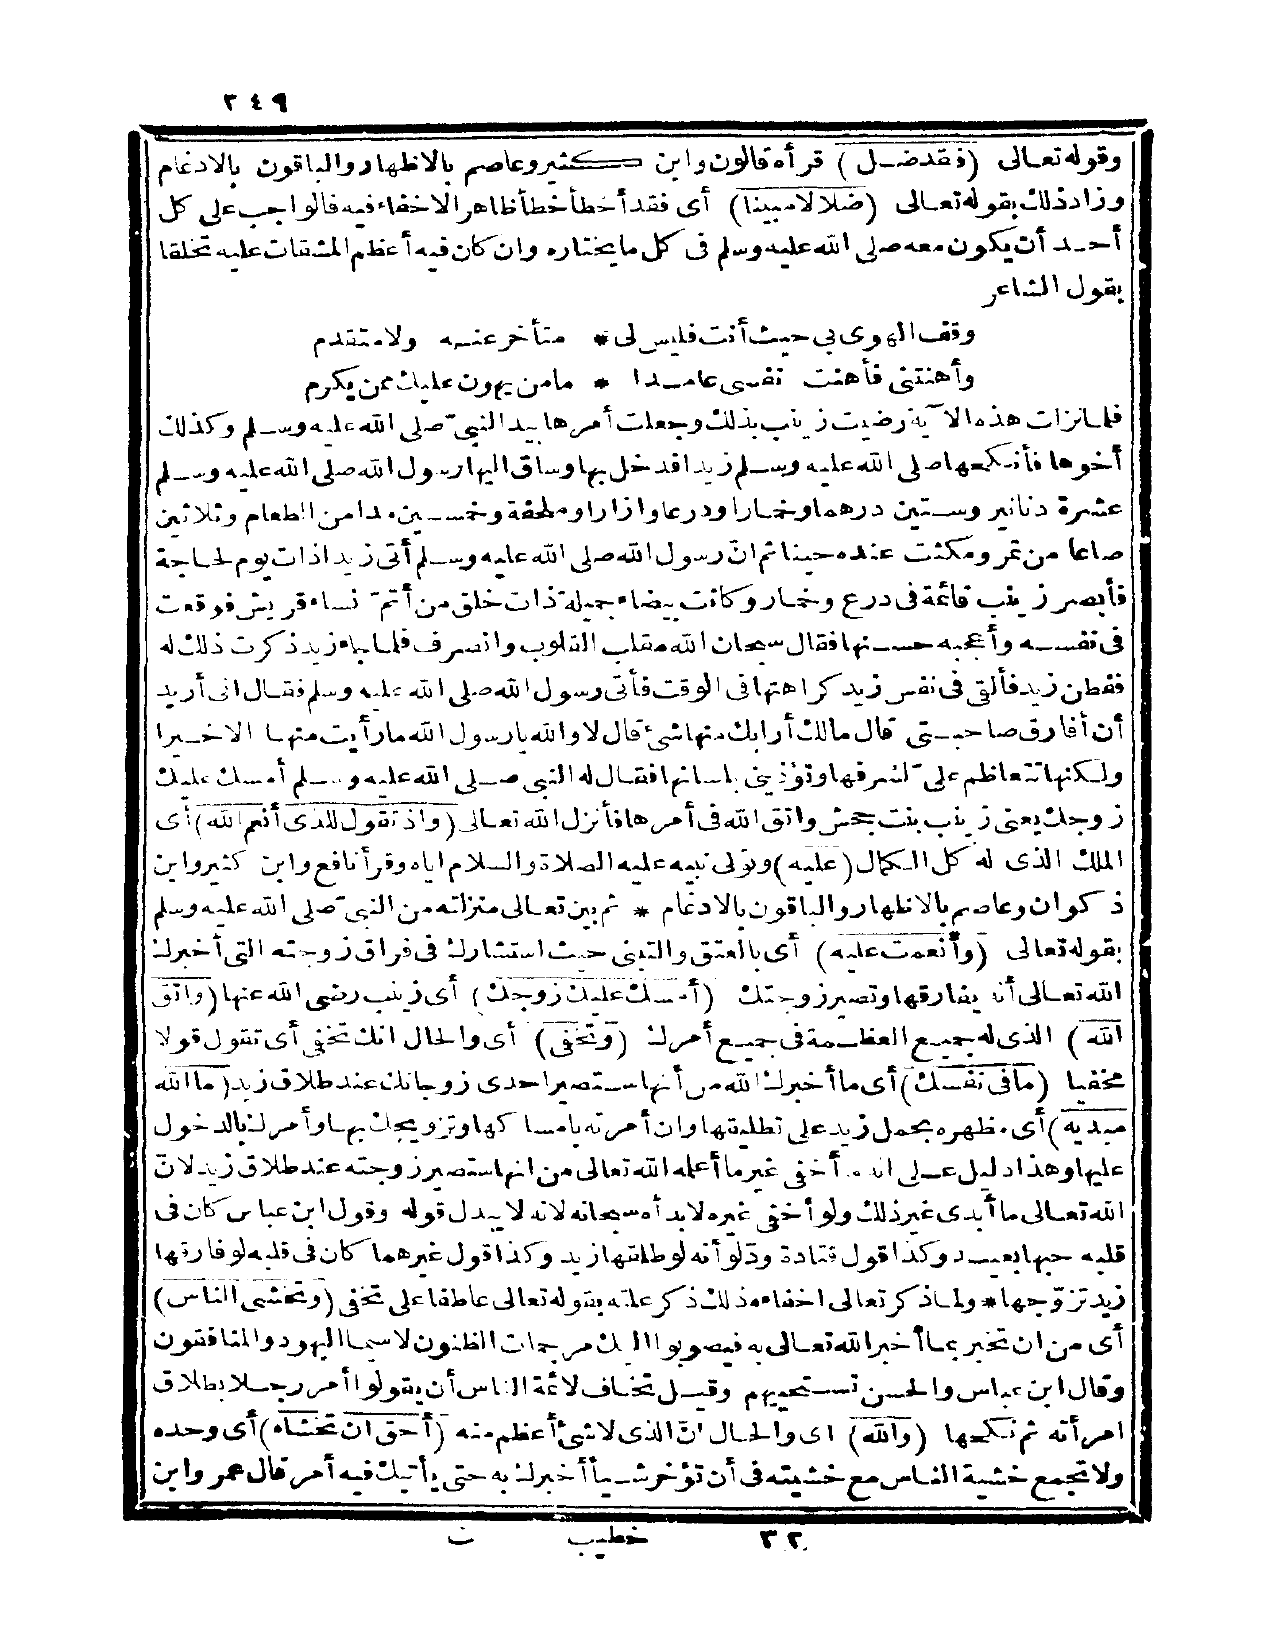 ٢٤٩
وقوله تعالى (فقد ضل) قرأه قالون وابن كثير وعاصم بالاظهار والباقون بالادغام
وزاد ذلك بقوله تعالى (ضلالا مبينا) أى فقد أخطأ خطأ ظاهر الاخفاء فيه فالواجب على كل
أحد أن يكون معه صلى الله عليه وسلم فى كل ما يختاره وان كان فيه أعظم المشقات عليه تخلقا
بقول الشاعر
وقف الهوى بى حيث أنت فليس لى * متأخر عنه ولا متقدم
وأهنتنى فأهنت نفسى عامدا * ما من يهون عليك ممن يكرم
فلما نزلت هذه الآية رضيت زينب بذلك وجعلت أمرها بيد النبىّ صلى الله عليه وسلم وكذلك
أخوها فأنكحها صلى الله عليه وسلم زيدا فدخل بها وساق اليها رسول الله صلى الله عليه وسلم
عشرة دنانير وستين درهما وخمارا ودرعا وازارا وملحفة وخمسين مدا من الطعام وثلاثين
صاعا من تمر ومكثت عنده حينا ثم انّ رسول الله صلى الله عليه وسلم أتى زيدا ذات يوم لحاجة
فأبصر زينب قائمة فى درع وخمار وكانت بيضاء جميلة ذات خلق من أتمّ نساء قريش فوقعت
فى نفسه وأعجبه حسنها فقال سبحان الله مقلب القلوب وانصرف فلما جاء زيد ذكرت ذلك له
ففطن زيد فألقى فى نفس زيد كراهتها فى الوقت فأتى رسول الله صلى الله عليه وسلم فقال انى أريد
أن أفارق صاحبتى قال مالك أرابك منها شئ قال لا والله يا رسول الله ما رأيت منها الاخيرا
ولكنها تتعاظم علىّ لشرفها وتؤذينى بلسانها فقال له النبى صلى الله عليه وسلم أمسك عليك
زوجك يعنى زينب بنت جحش واتق الله فى أمرها فأنزل الله تعالى (واذ تقول للذى أنعم الله) أى
الملك الذى له كل الكمال (عليه) وتولى نبيه عليه الصلاة والسلام اياه وقرأ نافع وابن كثير وابن
ذكوان وعاصم بالاظهار والباقون بالادغام * ثم بين تعالى منزلته من النبىّ صلى الله عليه وسلم
بقوله تعالى (وأنعمت عليه) أى بالعتق والتبنى حيث استشارك فى فراق زوجته التى أخبرك
الله تعالى أنه يفارقها وتصير زوجتك (أمسك عليك زوجك) أى زينب رضى الله عنها (واتق
الله) الذى له جميع العظمة فى جميع أمرك (وتخفى) أى والحال انك تخفى أى تقول قولا
مخفيا (ما فى نفسك) أى ما أخبرك الله من أنها ستصير احدى زوجاتك عند طلاق زيد (ما الله
مبديه) أى مظهره بحمل زيد على تطليقها وان أمرته بامساكها وتزويجك بها وأمرك بالدخول
عليها وهذا دليل على انه ما أخفى غير ما أعلمه الله تعالى من انها ستصير زوجته عند طلاق زيد لانّ
الله تعالى ما أبدى غير ذلك ولو أخفى غيره لابداه سبحانه لانه لا يبدل قوله وقول ابن عباس كان فى
قلبه حبها بعيد وكذا قول قتادة ودّ لو أنه لو طلقها زيد وكذا قول غيرهما كان فى قلبه لو فارقها
زيد تزوّجها * ولما ذكر تعالى اخفاءه ذلك ذكر علته بقوله تعالى عاطفا على تخفى (وتخشى الناس)
أى من ان تخبر بما أخبر الله تعالى به فيصوبوا اليك مرجمات الظنون لا سيما اليهود والمنافقون
وقال ابن عباس والحسن تستحييهم وقيل تخاف لائمة الناس أن يقولوا أمر رجلا بطلاق
امرأته ثم نكحها (والله) اى والحال انّ الذى لا شئ أعظم منه (أحق ان تخشاه) أى وحده
ولا تجمع خشية الناس مع خشيته فى أن تؤخر شيأ أخبرك به حتى يأتيك فيه أمر قال عمر وابن
٣٢ خطيب ث